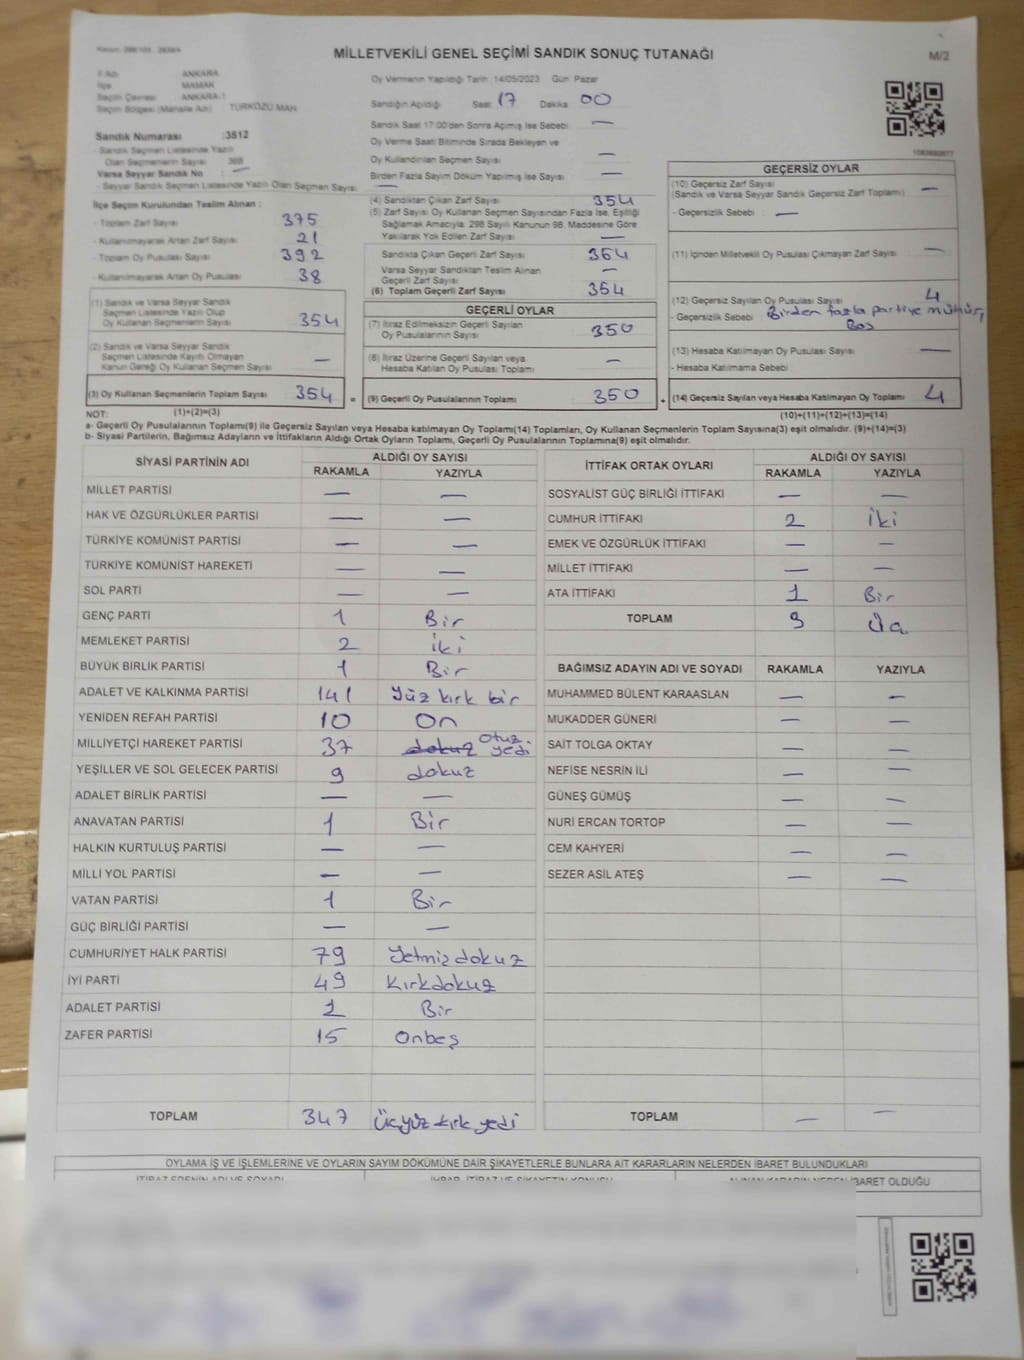 MİLLETVEKİLİ GENEL SEÇİMİ SANDIK SONUÇ TUTANAĞI
M/2
İl Adı ANKARA
İlçe MAMAK
Seçim Çevresi ANKARA-1
Seçim Bölgesi (Mahalle Adı) TÜRKÖZÜ MAH
Sandık Numarası :3512
- Sandık Seçmen Listesinde Yazılı
Olan Seçmenlerin Sayısı
Varsa Seyyar Sandık No —
- Seyyar Sandık Seçmen Listesinde Yazılı Olan Seçmen Sayısı —
İlçe Seçim Kurulundan Teslim Alınan :
- Toplam Zarf Sayısı 375
- Kullanılmayarak Artan Zarf Sayısı 21
- Toplam Oy Pusulası Sayısı 392
- Kullanılmayarak Artan Oy Pusulası 38
(1) Sandık ve Varsa Seyyar Sandık
Seçmen Listesinde Yazılı Olup
Oy Kullanan Seçmenlerin Sayısı 354
(2) Sandık ve Varsa Seyyar Sandık
Seçmen Listesinde Kayıtlı Olmayan
Kanun Gereği Oy Kullanan Seçmen Sayısı —
(3) Oy Kullanan Seçmenlerin Toplam Sayısı 354 =
Oy Vermenin Yapıldığı Tarih :14/05/2023 Gün :Pazar
Sandığın Açıldığı Saat 17 Dakika 00
Sandık Saat 17:00'den Sonra Açılmış İse Sebebi —
Oy Verme Saati Bitiminde Sırada Bekleyen ve
Oy Kullandırılan Seçmen Sayısı —
Birden Fazla Sayım Döküm Yapılmış İse Sayısı —
(4) Sandıktan Çıkan Zarf Sayısı 354
(5) Zarf Sayısı Oy Kullanan Seçmen Sayısından Fazla İse, Eşitliği
Sağlamak Amacıyla, 298 Sayılı Kanunun 98. Maddesine Göre
Yakılarak Yok Edilen Zarf Sayısı —
Sandıkta Çıkan Geçerli Zarf Sayısı 354
Varsa Seyyar Sandıktan Teslim Alınan
Geçerli Zarf Sayısı —
(6) Toplam Geçerli Zarf Sayısı 354
GEÇERLİ OYLAR
(7) İtiraz Edilmeksizin Geçerli Sayılan
Oy Pusulalarının Sayısı 350
(8) İtiraz Üzerine Geçerli Sayılan veya
Hesaba Katılan Oy Pusulası Toplamı —
(9) Geçerli Oy Pusulalarının Toplamı 350 +
GEÇERSİZ OYLAR
(10) Geçersiz Zarf Sayısı
(Sandık ve Varsa Seyyar Sandık Geçersiz Zarf Toplamı) —
- Geçersizlik Sebebi : —
(11) İçinden Milletvekili Oy Pusulası Çıkmayan Zarf Sayısı —
(12) Geçersiz Sayılan Oy Pusulası Sayısı 4
- Geçersizlik Sebebi Birden fazla partiye mühür,
Boş
(13) Hesaba Katılmayan Oy Pusulası Sayısı —
- Hesaba Katılmama Sebebi
(14) Geçersiz Sayılan veya Hesaba Katılmayan Oy Toplamı 4
NOT: (1)+(2)=(3)
(10)+(11)+(12)+(13)=(14)
a- Geçerli Oy Pusulalarının Toplamı(9) ile Geçersiz Sayılan veya Hesaba katılmayan Oy Toplamı(14) Toplamları, Oy Kullanan Seçmenlerin Toplam Sayısına(3) eşit olmalıdır. (9)+(14)=(3)
b- Siyasi Partilerin, Bağımsız Adayların ve İttifakların Aldığı Ortak Oyların Toplamı, Geçerli Oy Pusulalarının Toplamına(9) eşit olmalıdır.
SİYASİ PARTİNİN ADI ALDIĞI OY SAYISI
RAKAMLA YAZIYLA
MİLLET PARTİSİ — —
HAK VE ÖZGÜRLÜKLER PARTİSİ — —
TÜRKİYE KOMÜNİST PARTİSİ — —
TÜRKİYE KOMÜNİST HAREKETİ — —
SOL PARTİ — —
GENÇ PARTİ 1 Bir
MEMLEKET PARTİSİ 2 iki
BÜYÜK BİRLİK PARTİSİ 1 Bir
ADALET VE KALKINMA PARTİSİ 141 Yüz kırk bir
YENİDEN REFAH PARTİSİ 10 On
MİLLİYETÇİ HAREKET PARTİSİ 37 dokuz otuz yedi
YEŞİLLER VE SOL GELECEK PARTİSİ 9 dokuz
ADALET BİRLİK PARTİSİ — —
ANAVATAN PARTİSİ 1 Bir
HALKIN KURTULUŞ PARTİSİ — —
MİLLİ YOL PARTİSİ — —
VATAN PARTİSİ 1 Bir
GÜÇ BİRLİĞİ PARTİSİ — —
CUMHURİYET HALK PARTİSİ 79 Yetmiş dokuz
İYİ PARTİ 49 Kırkdokuz
ADALET PARTİSİ 1 Bir
ZAFER PARTİSİ 15 Onbeş
TOPLAM 347 Üçyüz kırk yedi
İTTİFAK ORTAK OYLARI ALDIĞI OY SAYISI
RAKAMLA YAZIYLA
SOSYALİST GÜÇ BİRLİĞİ İTTİFAKI — —
CUMHUR İTTİFAKI 2 İki
EMEK VE ÖZGÜRLÜK İTTİFAKI — —
MİLLET İTTİFAKI — —
ATA İTTİFAKI 1 Bir
TOPLAM 3 Üç
BAĞIMSIZ ADAYIN ADI VE SOYADI RAKAMLA YAZIYLA
MUHAMMED BÜLENT KARAASLAN — —
MUKADDER GÜNERİ — —
SAİT TOLGA OKTAY — —
NEFİSE NESRİN İLİ — —
GÜNEŞ GÜMÜŞ — —
NURİ ERCAN TORTOP — —
CEM KAHYERİ — —
SEZER ASİL ATEŞ — —
TOPLAM — —
OYLAMA İŞ VE İŞLEMLERİNE VE OYLARIN SAYIM DÖKÜMÜNE DAİR ŞİKAYETLERLE BUNLARA AİT KARARLARIN NELERDEN İBARET BULUNDUKLARI
İTİRAZ EDENİN ADI VE SOYADI İHBAR, İTİRAZ VE ŞİKAYETİN KONUSU ALINAN KARARIN NEDEN İBARET OLDUĞU